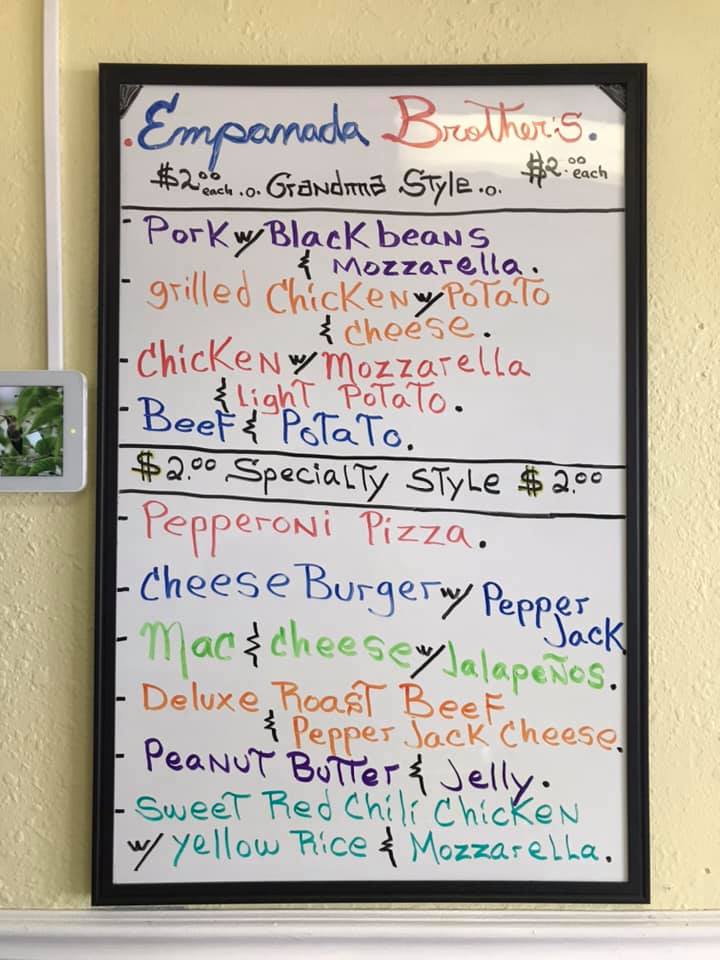 .Empanada Brother's.
$2.00 each .o. Grandma Style .o. $2.00 each
- Pork w/ Black beans
& Mozzarella.
- grilled Chicken w/ Potato
& cheese.
- Chicken w/ Mozzarella
& Light Potato.
- Beef & Potato.
$2.00 Specialty Style $2.00
- Pepperoni Pizza.
- Cheese Burger w/ Pepper
Jack
- Mac & cheese w/ Jalapeños.
- Deluxe Roast Beef
& Pepper Jack Cheese.
- Peanut Butter & Jelly.
- Sweet Red Chili Chicken
w/ Yellow Rice & Mozzarella.